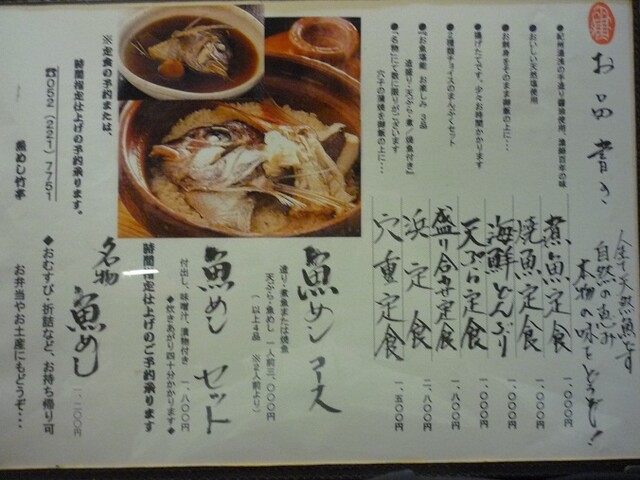 お品書き
人生も天然魚なす
自然の恵み
本物の味をどうぞ!
●紀州湯浅の手造り醤油使用、濃姉百年の味
煮魚定食 一、〇〇〇円
●おいしい天然塩使用
焼魚定食 一、〇〇〇円
●お刺身をそのまま御飯の上に…
海鮮どんぶり 一、〇〇〇円
●揚げたてです。少々お時間かかります
天ぷら定食 一、〇〇〇円
●2種類チョイスのまんぷくセット
盛り合せ定食 一、八〇〇円
●『お魚場楽 お楽しみ 3品
造盛り・天ぷら・煮/焼魚付き』
浜定食 二、八〇〇円
●『名物』にて数に限りがございます
穴子の蒲焼を御飯の上に…
穴重定食 一、五〇〇円
魚めしコース
造り・煮魚または焼魚
天ぷら・魚めし 一人前三、〇〇〇円
(以上4品 ※2人前より)
魚めしセット
付出し、味噌汁、漬物付き 一、八〇〇円
◆炊きあがり四十分かかります◆
時間指定仕上げのご予約承ります
名物 魚めし 一、二〇〇円
◆おむすび・折詰など、お持ち帰り可
お弁当やお土産にもどうぞ…
※定食の予約または、
時間指定仕上げの予約承ります。
☎052(221)7751
魚めし竹亭